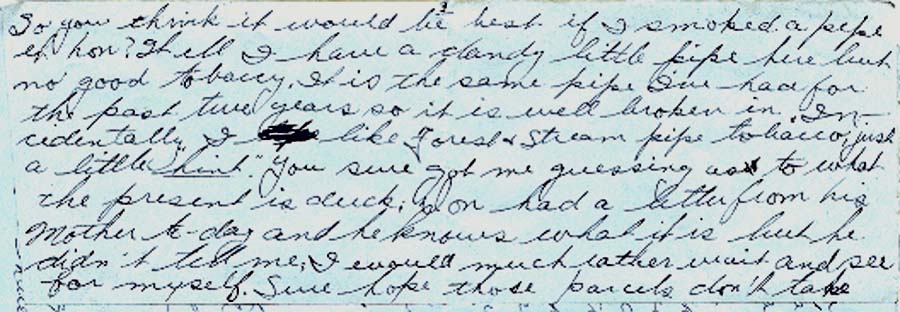 So you think it would be best if I smoked a pipe
eh hon? Well I have a dandy little pipe here but
no good tobaccy. It is the same pipe I've had for
the past two years so it is well broken in. In-
cidentally, I like Forest & Stream pipe tobacco, just
a little "hint". You sure got me guessing as to what
the present is duck; Don had a letter from his
Mother to-day and he knows what it is but he
didn't tell me; I would much rather wait and see
for myself. Sure hope those parcels don't take